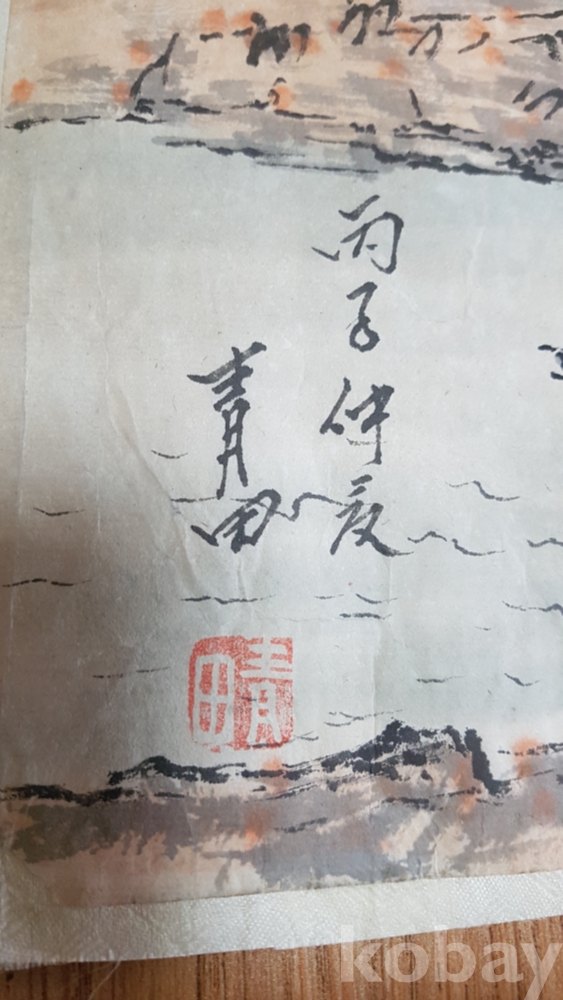 丙子仲夏
青田
青田
kobay